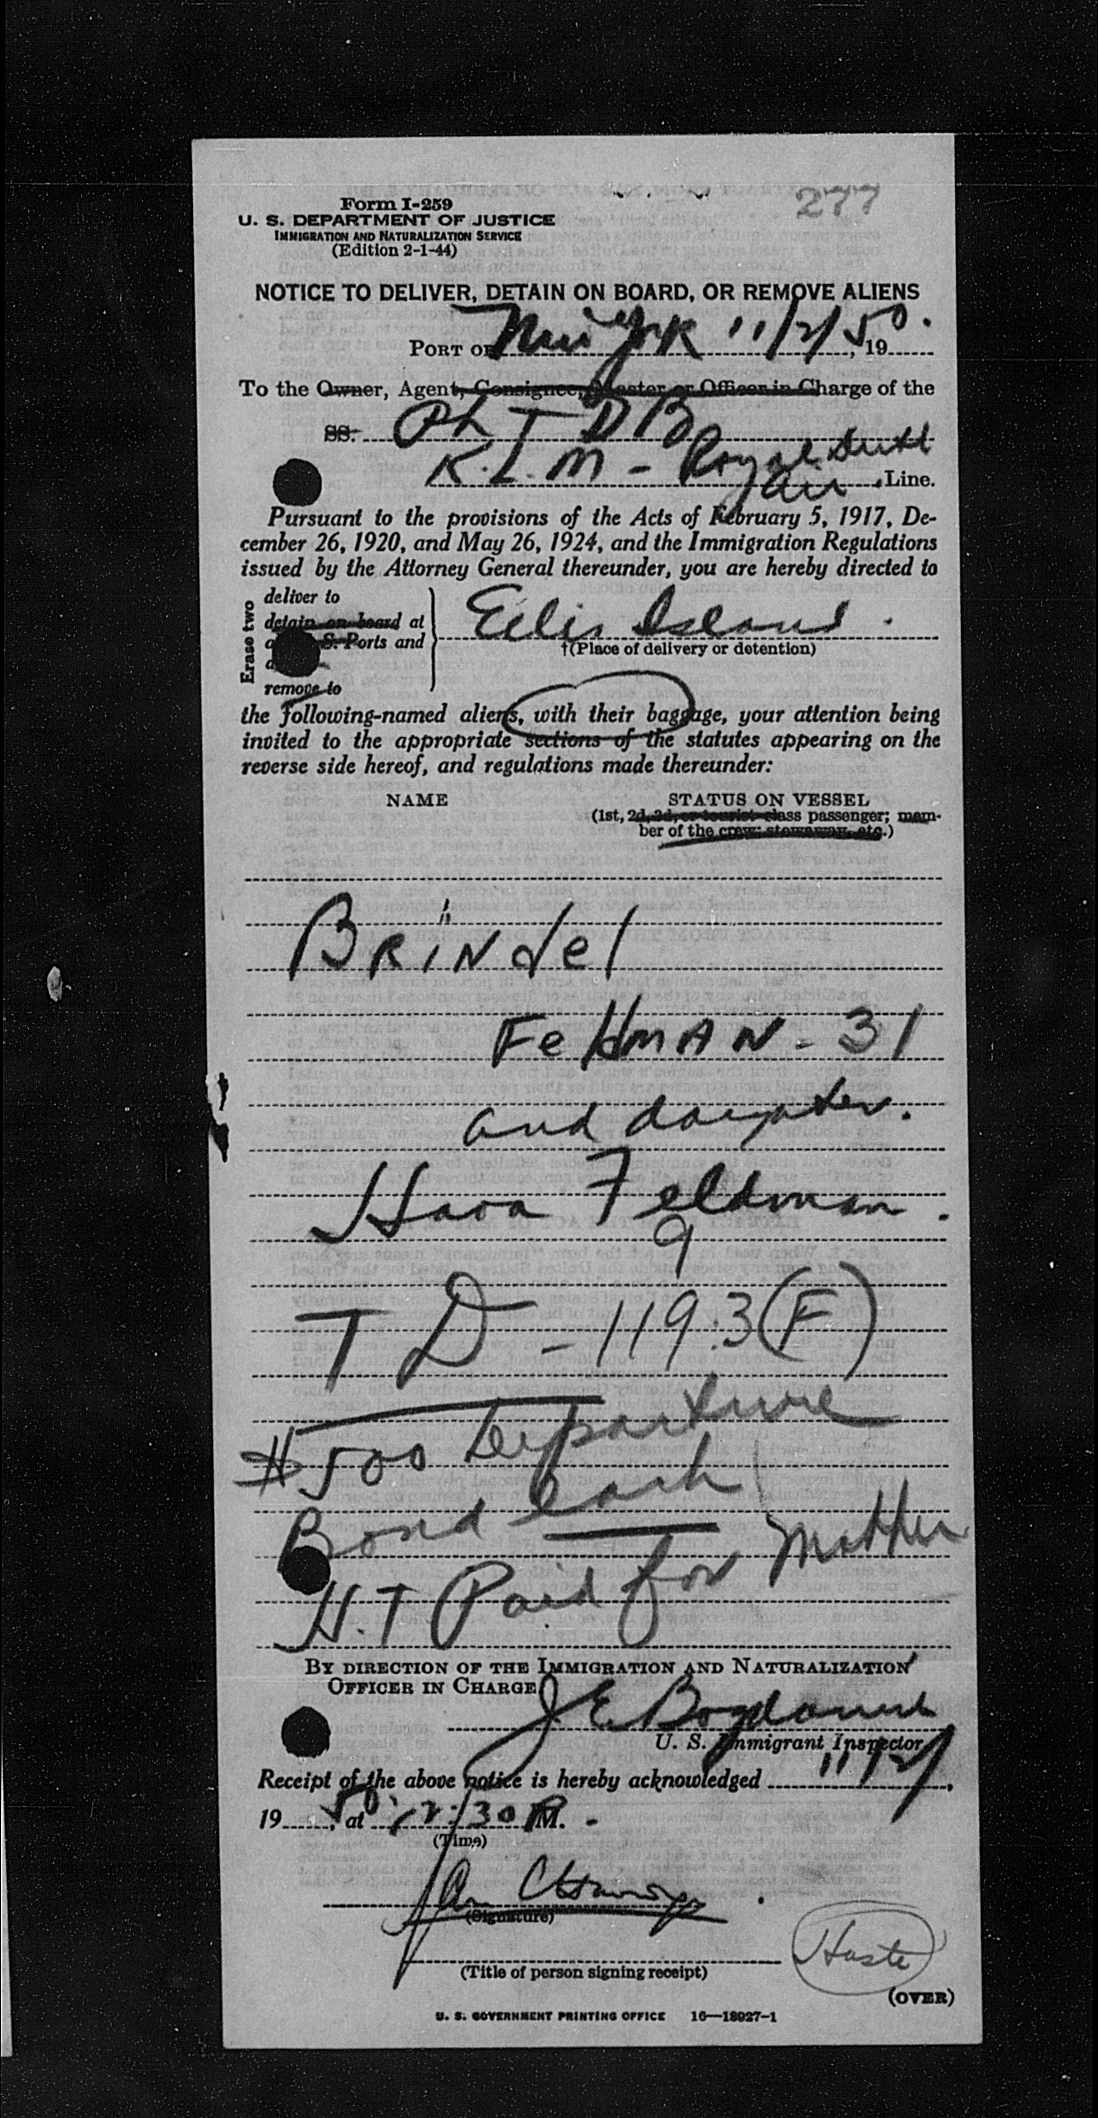 277
Form I-259
U. S. DEPARTMENT OF JUSTICE
IMMIGRATION AND NATURALIZATION SERVICE
(Edition 2-1-44)
NOTICE TO DELIVER, DETAIN ON BOARD, OR REMOVE ALIENS
PORT OF New York 11/2/50. , 19
To the Owner, Agent, Consignee, Master or Officer in Charge of the
SS. Ph T D B
K.L.M - Royal Dutch
Air . Line.
Pursuant to the provisions of the Acts of February 5, 1917, De-
cember 26, 1920, and May 26, 1924, and the Immigration Regulations
issued by the Attorney General thereunder, you are hereby directed to
Erase two
deliver to
detain on board at
S. Ports and
remove to
Ellis Island .
†(Place of delivery or detention)
the following-named aliens, with their baggage, your attention being
invited to the appropriate sections of the statutes appearing on the
reverse side hereof, and regulations made thereunder:
NAME STATUS ON VESSEL
(1st, 2d, 3d, or tourist class passenger; mem-
ber of the crew; stowaway, etc.)
BRiNdel
FeldmAN - 31
and daughter.
Hava Feldman.
9
T D - 119.3(F)
$500 Departure
Bond each
H.T Paid for Mother
BY DIRECTION OF THE IMMIGRATION AND NATURALIZATION
OFFICER IN CHARGE
J E
U. S. Immigrant Inspector
Receipt of the above notice is hereby acknowledged 11/2/ ,
19 50, at 12:30 P M.
(Time)
(Signature)
(Title of person signing receipt)
(OVER)
U. S. GOVERNMENT PRINTING OFFICE 16—18927-1